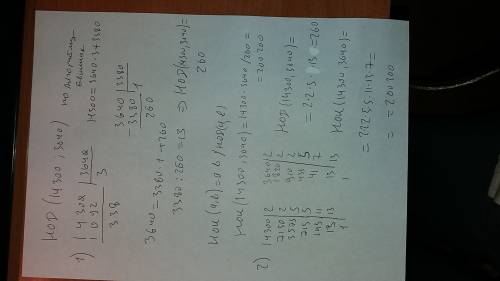 НОД (14300 ; 3640)
1) 14300 | 3640
1092 | 3
338
14300 = 3640·3 + 3380
3640 | 3380
-3380 | 1
260
3640 = 3380·1 + 260
3380 : 260 = 13 ⇒ НОД(14300, 3640) =
260
НОК (a, b) = a·b / НОД(a, b)
НОК (14300, 3640) = 14300·3640 / 260 =
= 200200
2) 14300 | 2
7150 | 2
3575 | 5
715 | 5
143 | 11
13 | 13
1
3640 | 2
1820 | 2
910 | 2
455 | 5
91 | 7
13 | 13
1
НОД (14300, 3640) =
= 2·2·5·13 = 260
НОК (14300, 3640) =
= 2·2·2·5·5·11·13·7 =
= 200200